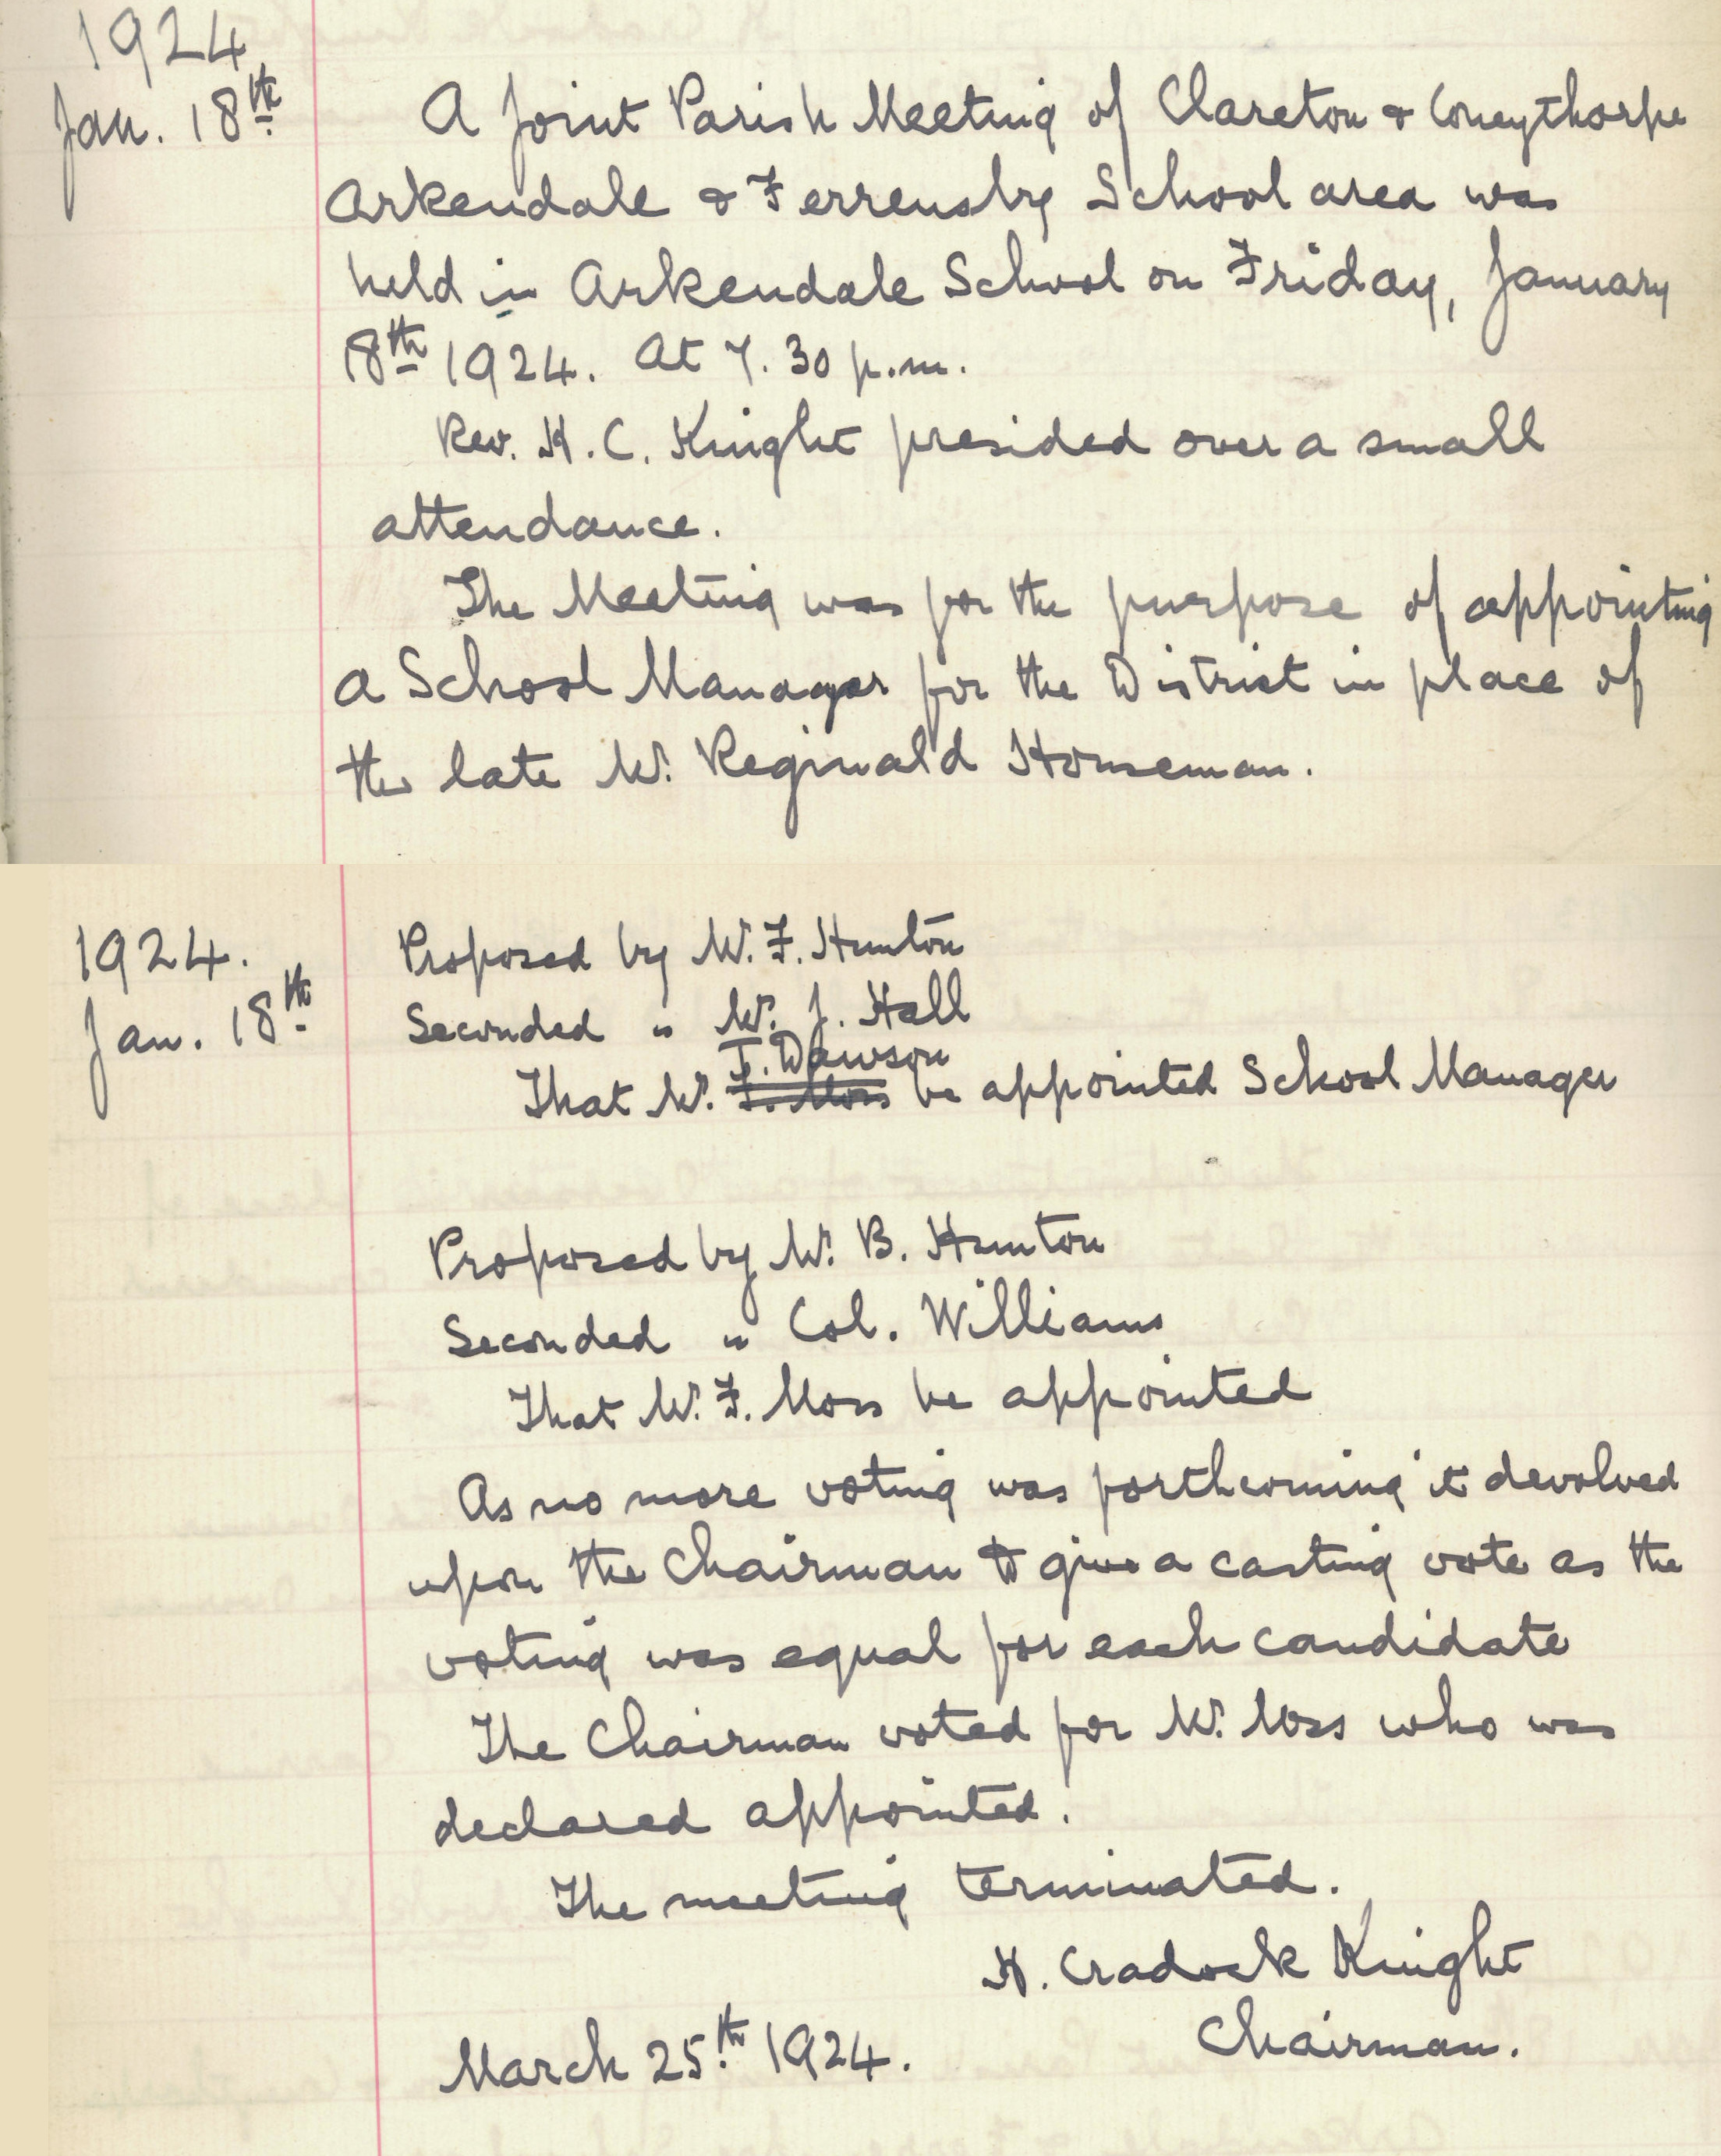 1924
Jan. 18th
A Joint Parish Meeting of Clareton & Coneythorpe
Arkendale & Ferrensby School area was
held in Arkendale School on Friday, January
18th 1924. At 7.30 p.m.
Rev. H. C. Knight presided over a small
attendance.
The Meeting was for the purpose of appointing
a School Manager for the District in place of
the late Mr. Reginald Horseman.
1924.
Jan. 18th
Proposed by Mr. F. Hunton
Seconded " Mr. J. Hall
T. Dawson
That Mr. F. Moss be appointed School Manager
Proposed by Mr. B. Hunton
Seconded " Col. Williams
That Mr. F. Moss be appointed
As no more voting was forthcoming it devolved
upon the Chairman to give a casting vote as the
voting was equal for each candidate
The Chairman voted for Mr. Moss who was
declared appointed.
The meeting terminated.
H. Cradock Knight
Chairman.
March 25th 1924.